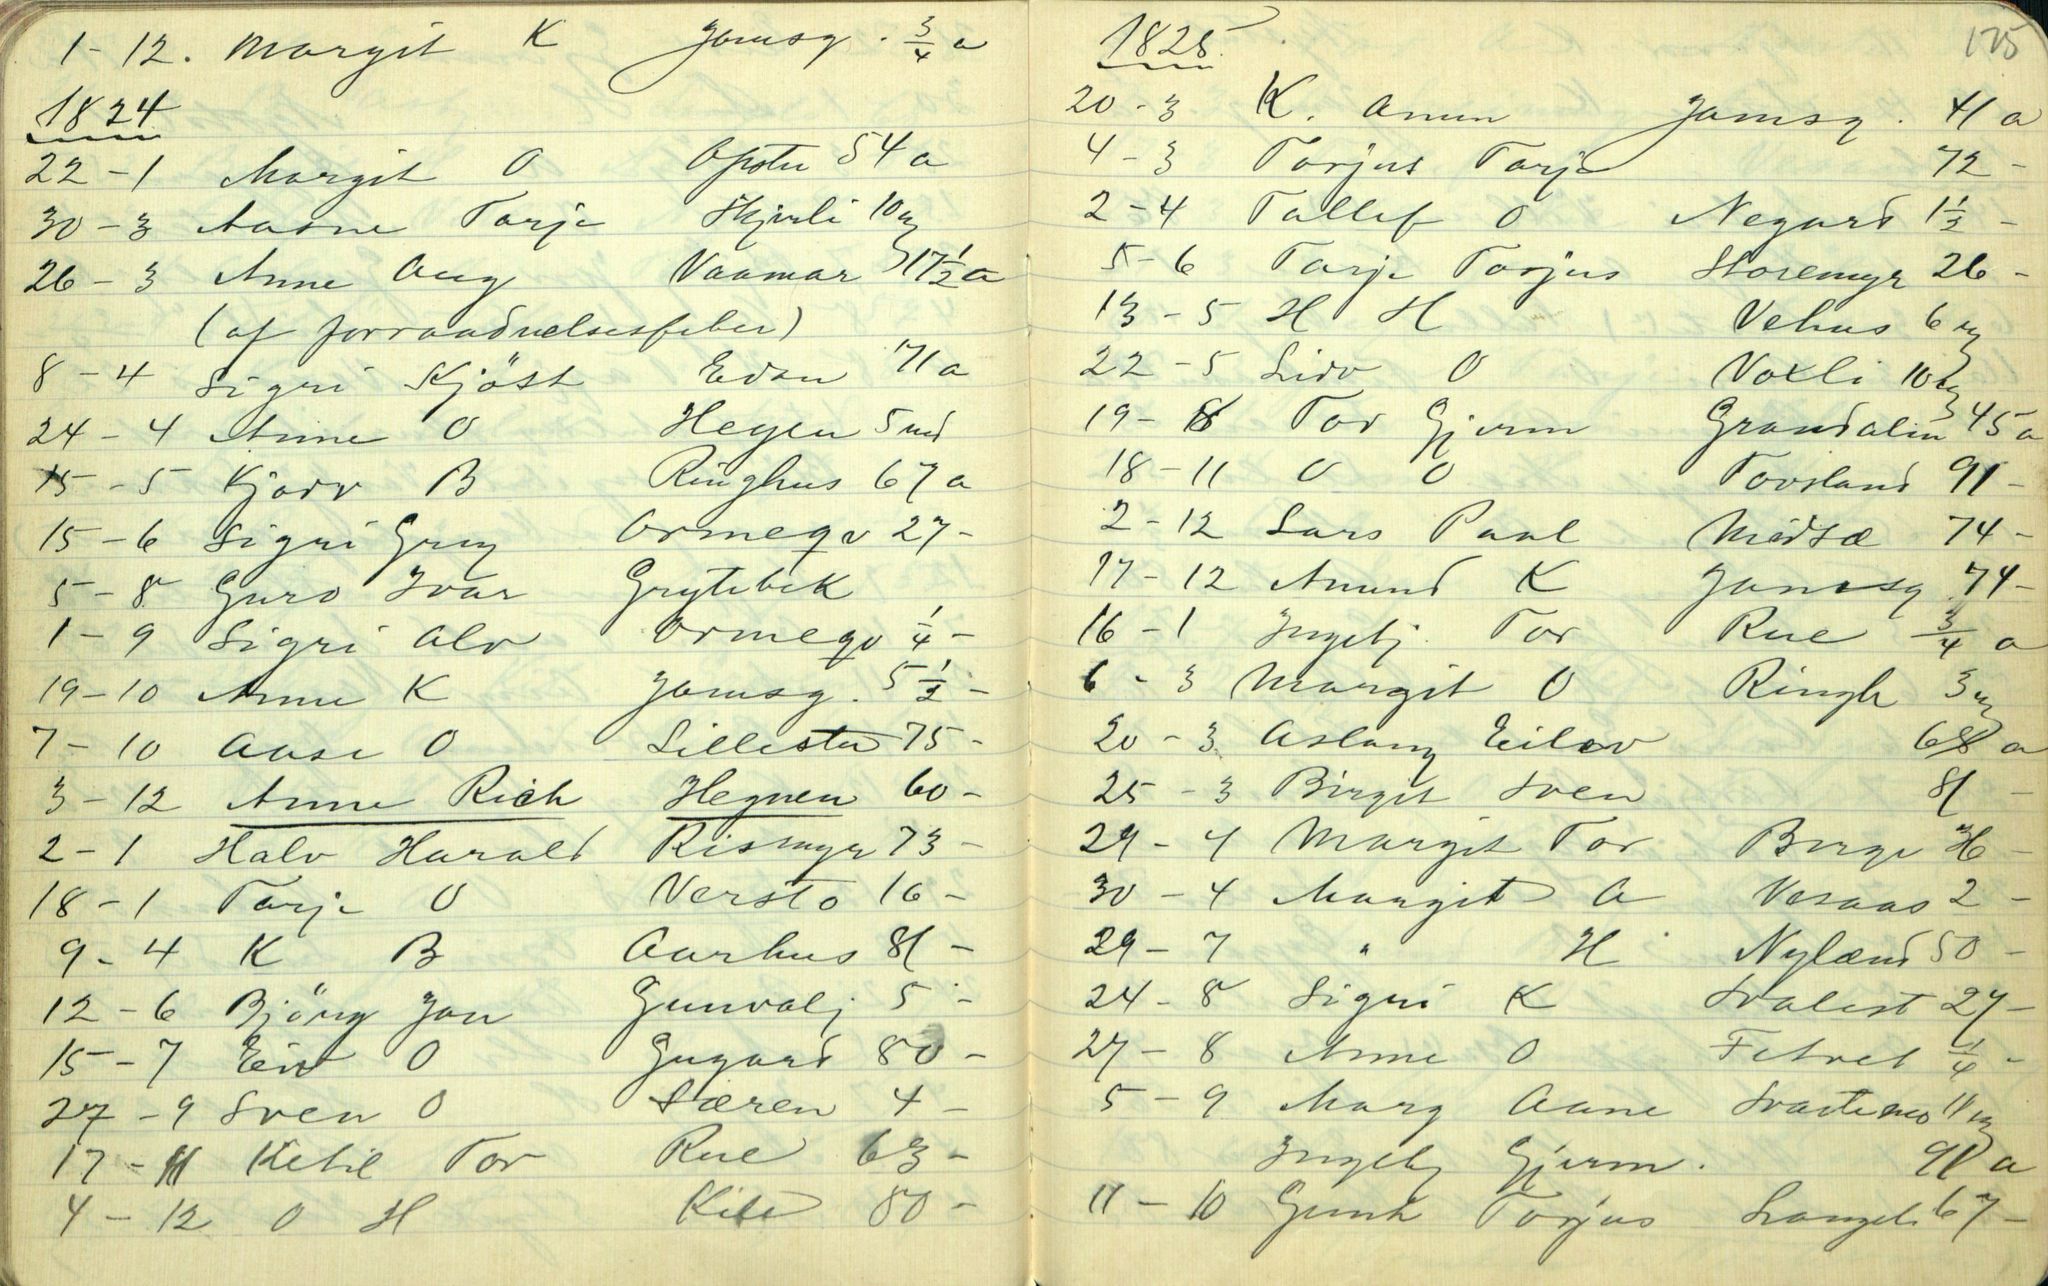 1 - 12. Margit K Jamsg. 3/4 a
1824
22 - 1 Margit O Opstu 54 a
30 - 3 Aasne Tarje Skjerli 10 m
26 - 3 Anne Aug Vaamar 17 1/2 a
(af forraadnelsesfeber)
8 - 4 Sigri Kjöst Edsu 71 a
24 - 4 Anne O Hegnen 5 md
15 - 5 Kjodv B Ringhus 67 a
15 - 6 Sigri Greg Ormeqv 27 -
5 - 8 Guro Ivar Grytebek
1 - 9 Sigri Alv Ormeqv 1/4 -
19 - 10 Anne K Jamsg. 5 1/2 -
7 - 10 Aase O Lillestu 75 -
3 - 12 Anne Rich Hegnen 60 -
2 - 1 Halv Harald Rismyr 73 -
18 - 1 Tarje O Versto 16 -
9 - 4 K B Aarhus 81 -
12 - 6 Björg Jon Gunvalj 5 -
15 - 7 Eiv O Gugard 80 -
27 - 9 Sven O Særen 4 -
17 - 11 Ketil Tor Rue 63 -
4 - 12 O H Kile 80 -
175
1825.
20 - 3 K. Amun Jamsg. 41 a
4 - 3 Torjus Tarje 72 -
2 - 4 Tallef O Negard 1 1/2 -
5 - 6 Tarje Torjus Storemyr 26 -
13 - 5 H H Vehus 6 m
22 - 5 Lidv O Voxli 10 m
19 - 8 Tor Gjerm Grandalin 45 a
18 - 11 O O Tovsland 91 -
2 - 12 Lars Paal Midsæ 74 -
17 - 12 Amund K Jamsg 74 -
16 - 1 Ingebj. Tor Rue 3/4 a
6 - 3 Margit O Ringh 3 m
20 - 3 Aslaug Eilev 68 a
25 - 3 Birgit Sven 81 -
29 - 4 Margit Tor Berge 36 -
30 - 4 Margit A Vesaas 2 -
29 - 7 " H Nylænd 50 -
24 - 8 Sigri K Svalest 27 -
27 - 8 Anne O Fetvet 1/4 -
5 - 9 Marg Aane Svartemo 11 m
Ingebj Gjerm. 91 a
11 - 10 Gunh Torjus Langeli 67 -